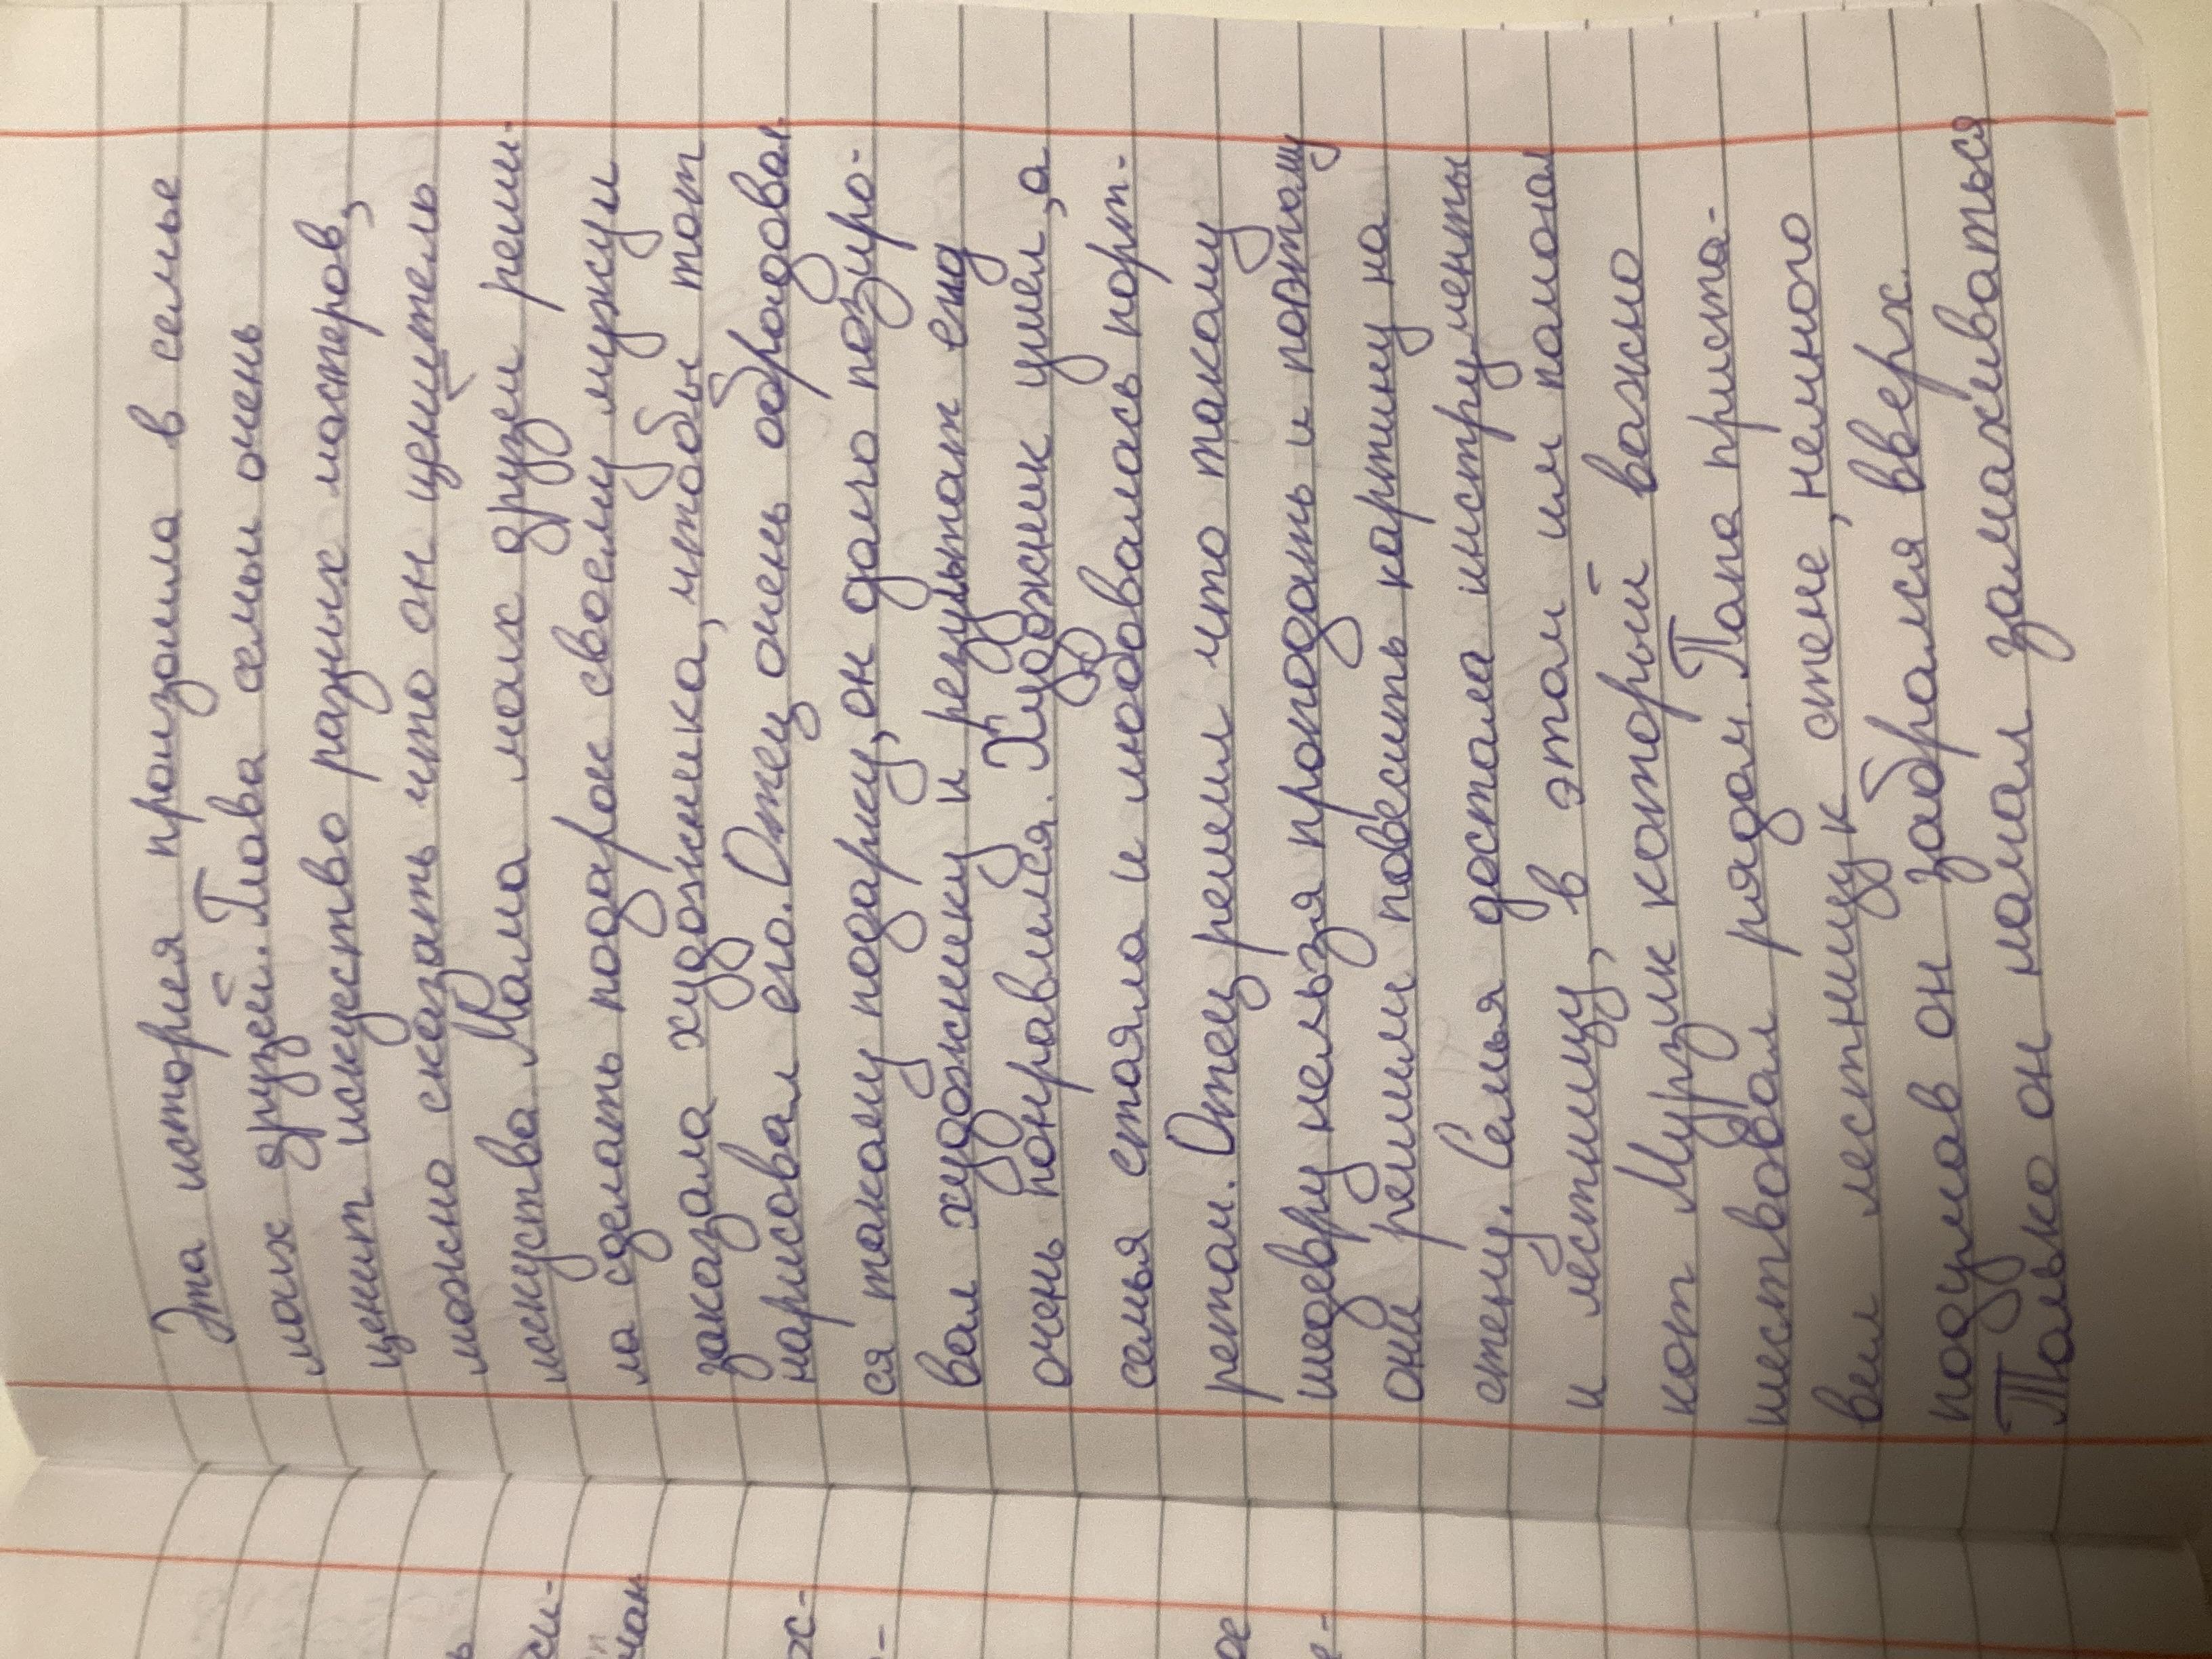 Эта история произошла в семье
моих друзей. Глава семьи очень
ценит искуство разных мастеров,
можно сказать что он ценитель
искуства. Мама моих друзей реши-
ла сделать подарок своему мужу и
заказала художника, чтобы тот
нарисовал его. Отец очень обрадовал
ся такому подарку, он долго позиро-
вал художнику и результат ему
очень понравился. Художник ушел, а
семья стояла и любовалась порт-
ретом. Отец решил что такому
шедевру нельзя пропадать и поэтому
они решили повесить картину на
стену. Семья достала инструменты
и лестницу, в этом им помогал
кот Мурзик который важно
шествовал рядом. Папа приста-
вил лестницу к стене, немного
подумав он забрался вверх.
Только он начал замахиваться
ь
си-
чал
ж-
-
ое
е-